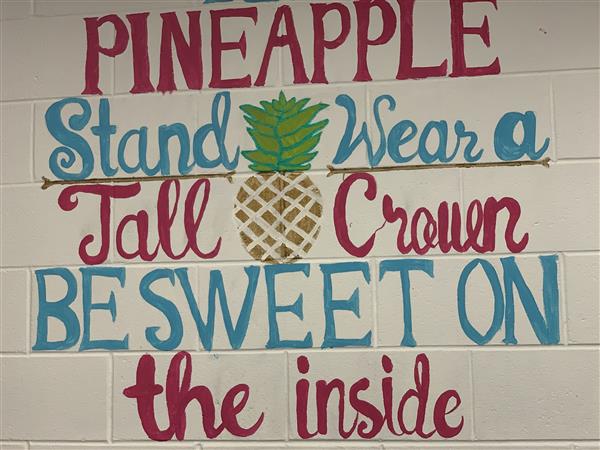 PINEAPPLE
Stand Wear a
Tall Crown
BE SWEET ON
the inside